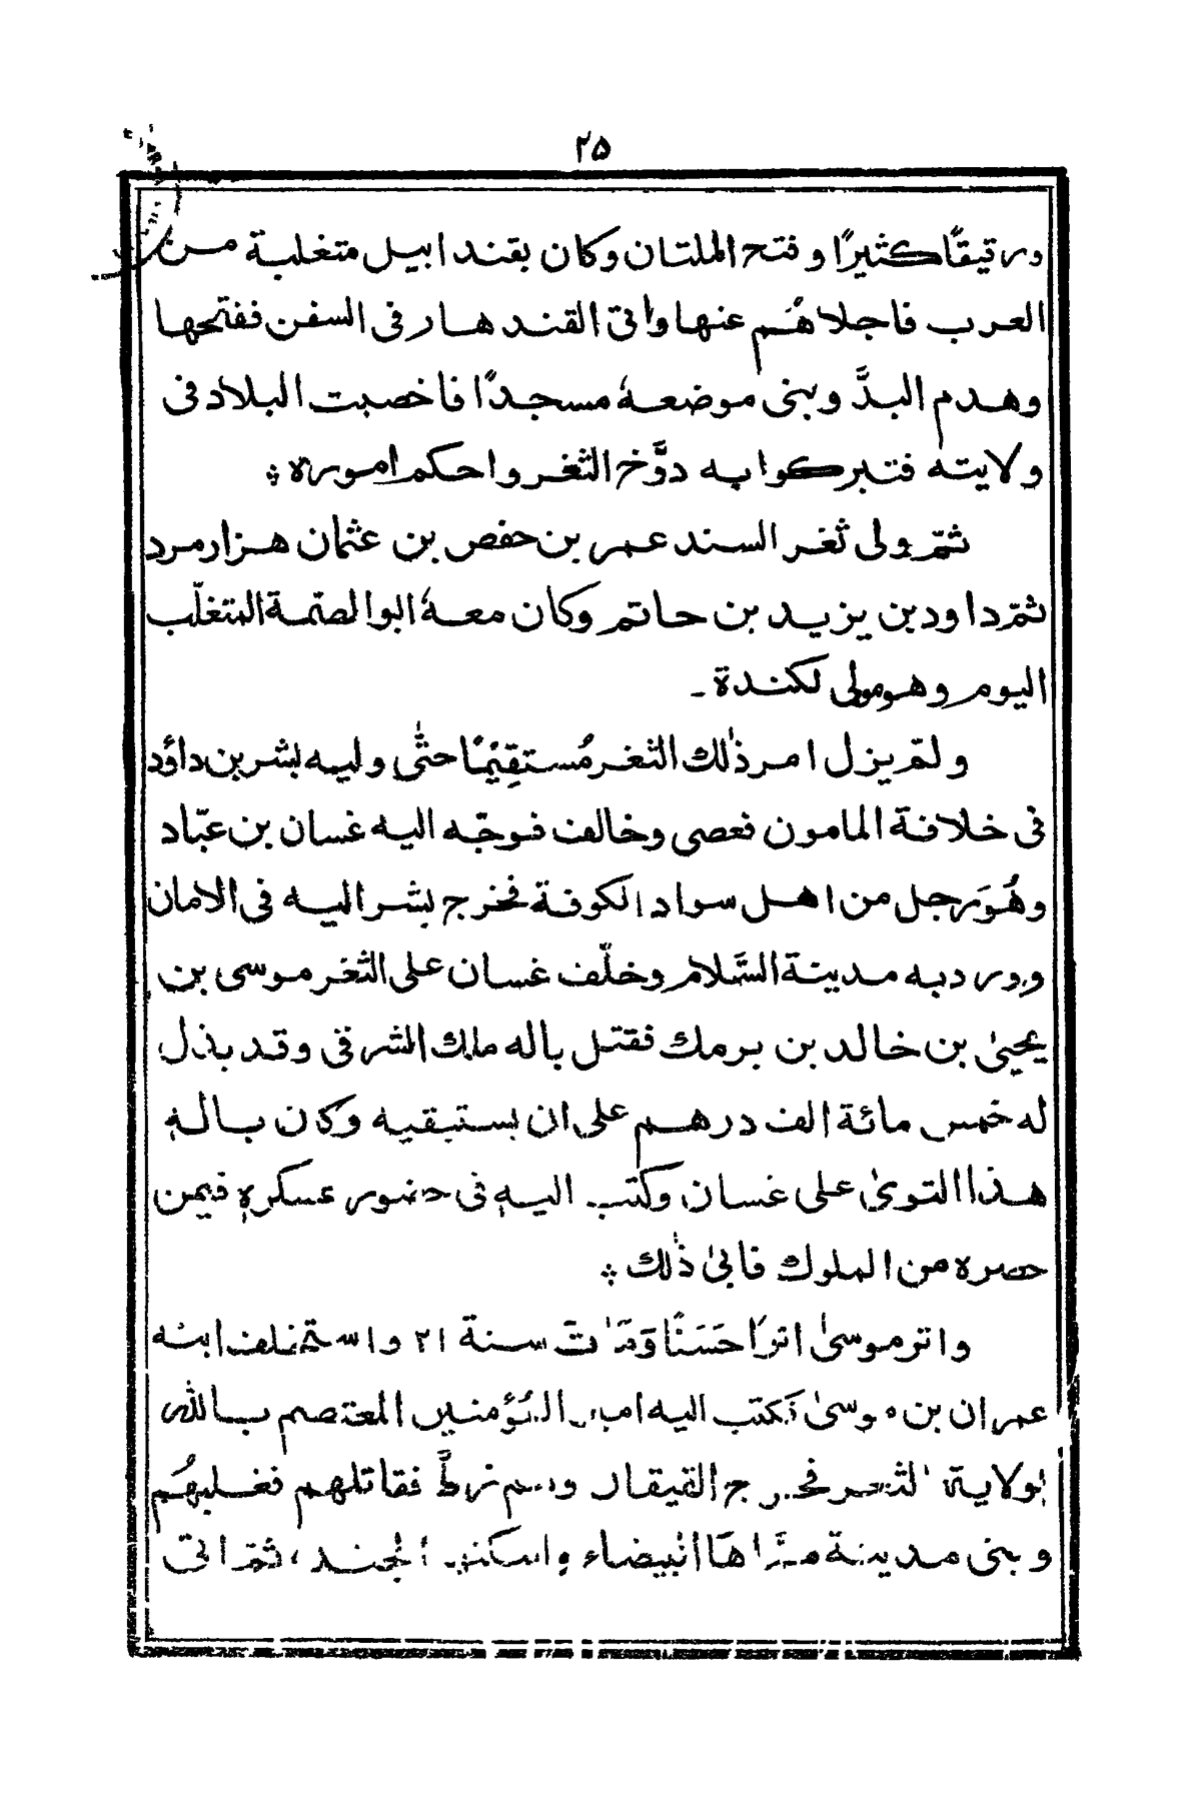 ۲۵
ورقيقًا كثيرًا و فتح الملتان وكان بقندابيل متغلبة من
العرب فاجلاهُم عنها واتى القندهار فى السفن ففتحها
وهدم البدَّ وبنى موضعهٗ مسجدًا فاخصبت البلاد فى
ولايتهٖ فتبركوا به دوَّخ الثغر واحكم اموره ؞
ثمّ ولى ثغر السند عمر بن حفص بن عثمان هزارمرد
ثمّ داود بن يزيد بن حاتم وكان معهٗ ابوالصّمة المتغلّب
اليوم وهو مولى لكندة ۔
ولمّ يزل امر ذٰلك الثغر مُستقِيْمًا حتّٰى وليه بشر بن داؤد
فى خلافة المامون فعصى وخالف فوجّه اليه غسان بن عبّاد
وهُوَ رجل من اهل سواد الكوفة فخرج بشر اليه فى الامان
وورد به مدينة السَّلام وخلّف غسان على الثغر موسى بن
يحيىٰ بن خالد بن برمك فقتل باله ملك الشرقى وقد بذل
له خمس مائة الف درهم على ان يستبقيه وكان باله
هذا التوىٰ على غسان وكتب اليه فى حضور عسكره فيمن
حضره من الملوك فابىٰ ذٰلك ؞
واثر موسىٰ اثرًا حَسَنًا وَمَاتَ سنة ۲۱ واستخلف ابنه
عمران بن موسىٰ فكتب اليه امير المؤمنين المعتصم بالله
بولاية الثغر فخرج الى القيقان وهم زطٌّ فقاتلهم فغلبهُم
وبنى مدينة سمّاها البيضاء واسكنها الجند، ثمّ اتى